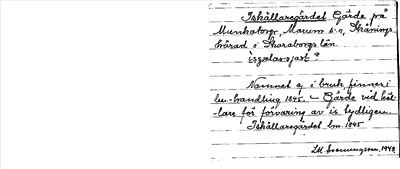 Iskällaregärdet. Gärde på
Munkatorp, Marums s:n, Skånings
härad i Skaraborgs län.
Namnet ej i bruk, finnes i
lm-handling 1845. – Gärde vid käl-
lare för förvaring av is tydligen.
Iskällaregärdet lm. 1845
1948